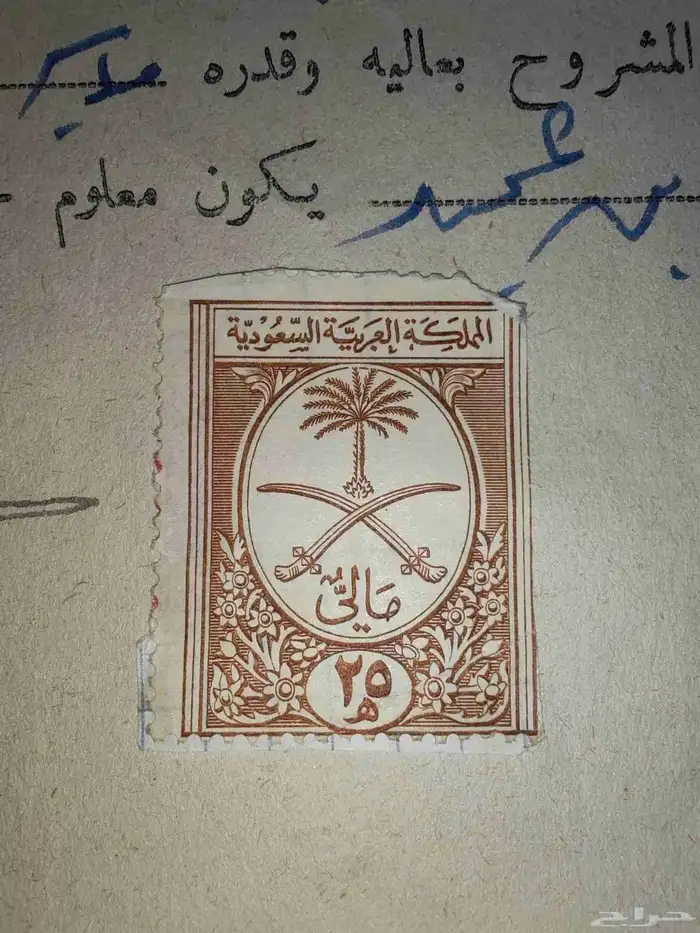 المشروح بعاليه وقدره
يكون معلوم -
المملكة العربية السعودية
مالي
٢٥
ھ
حراج